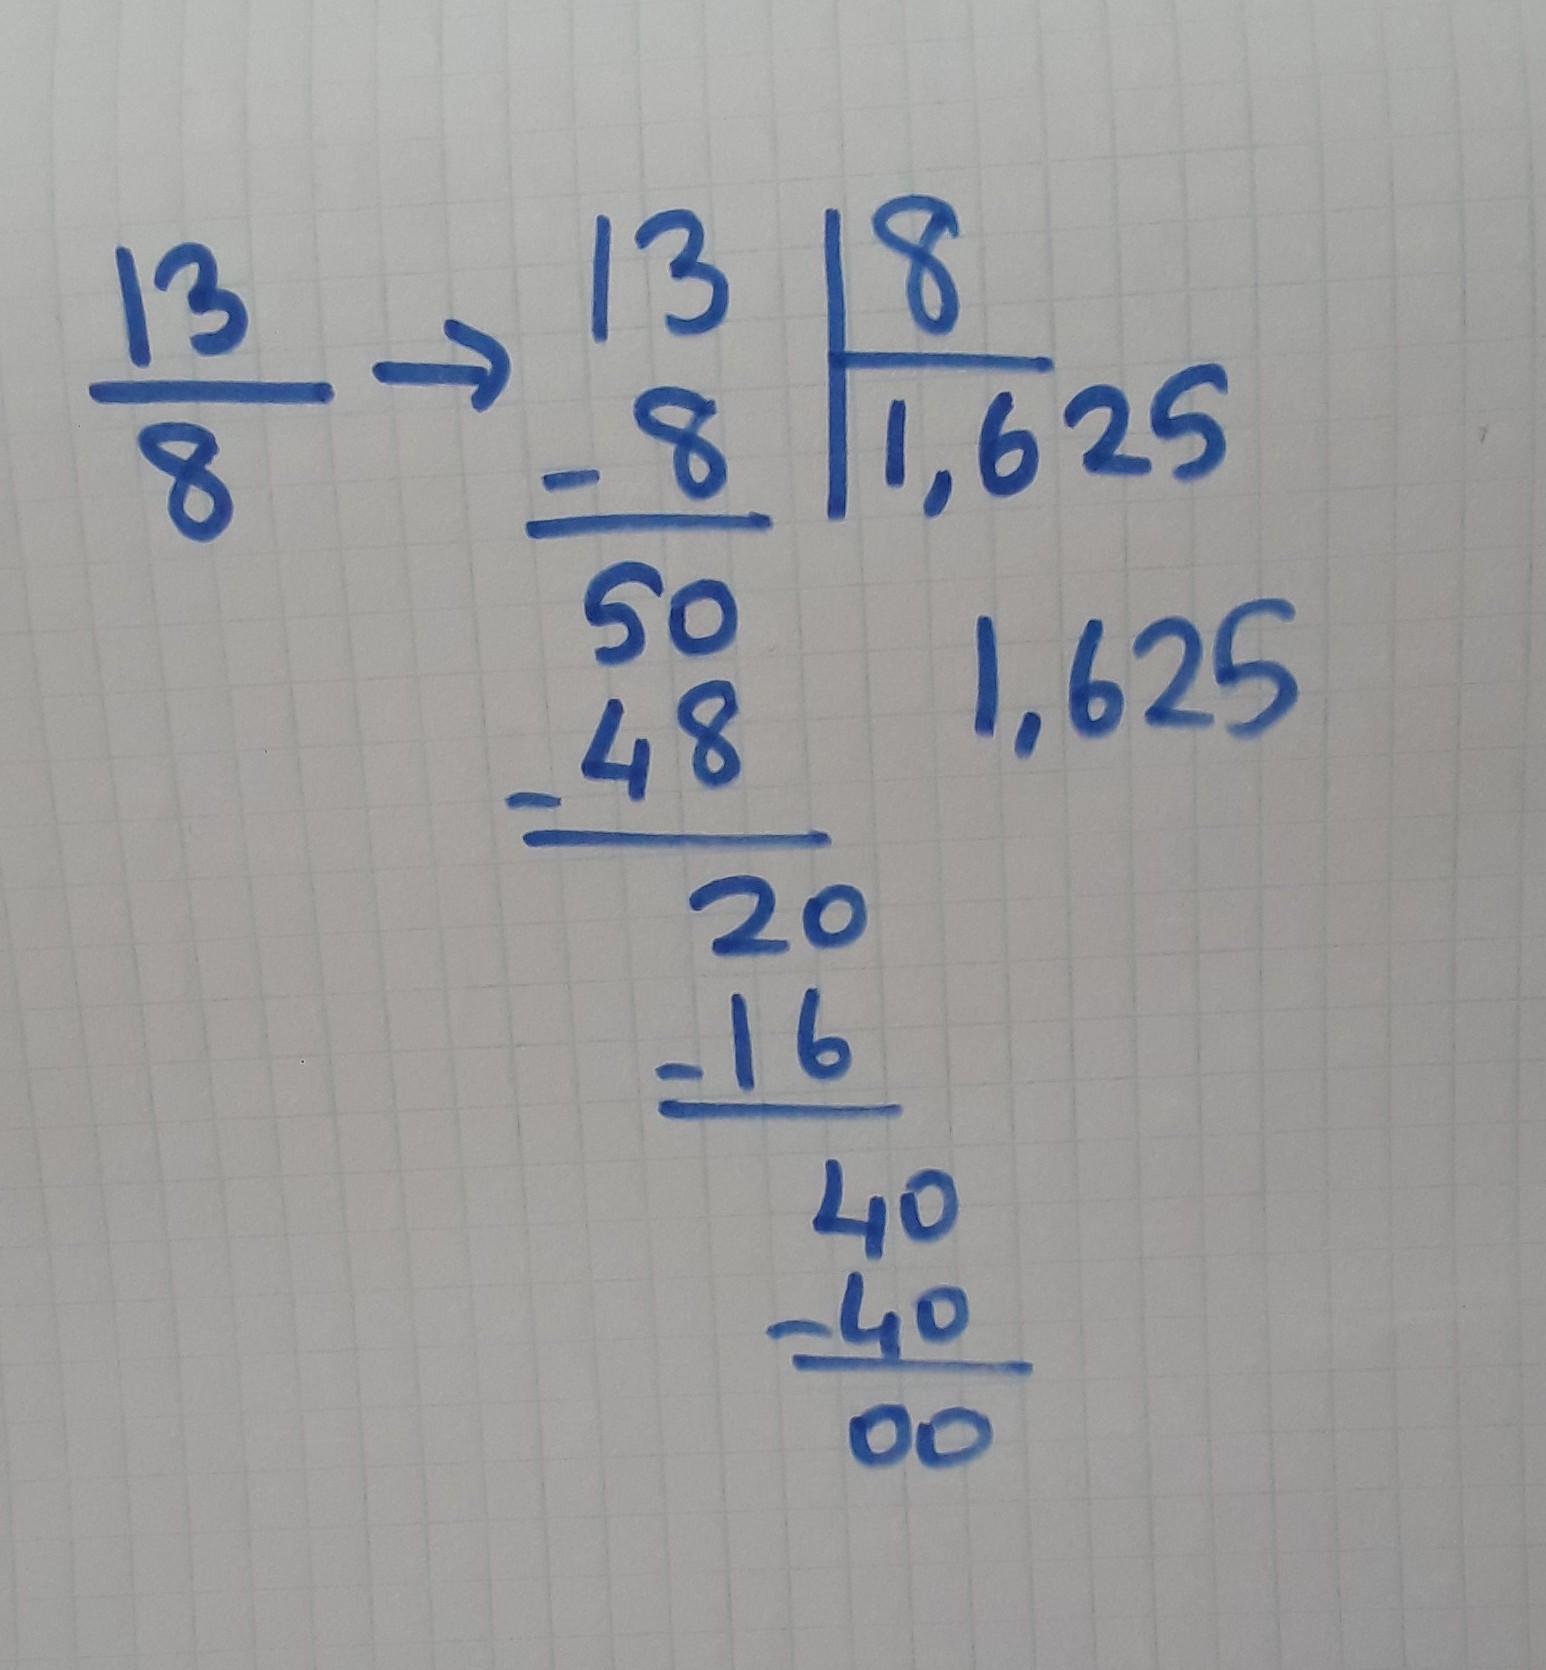 13/8 → 13 | 8
- 8 | 1,625
50
- 48
1,625
20
- 16
40
- 40
00